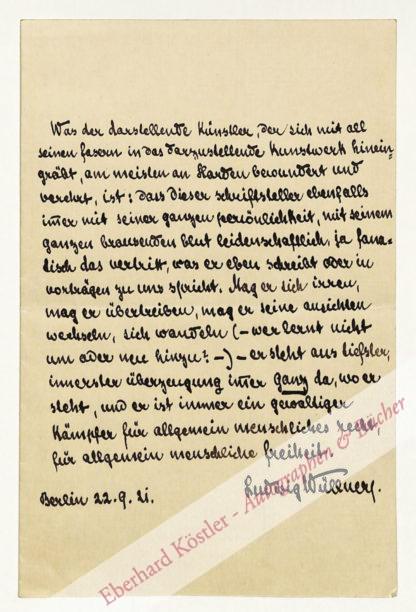 Was der darstellende Künstler, der sich mit all
seinen Fasern in das darzustellende Kunstwerk hinein-
gräbt, am meisten an Harden bewundert und
verehrt, ist: dass dieser Schriftsteller ebenfalls
immer mit seiner ganzen Persönlichkeit, mit seinem
ganzen brausenden Blut leidenschaftlich, ja fana-
tisch das vertritt, was er eben schreibt oder in
Vorträgen zu uns spricht. Mag er sich irren,
mag er übertreiben, mag er seine Ansichten
wechseln, sich wandeln (– wer lernt nicht
um oder neu hinzu? –) – er steht aus tiefster,
innerster Überzeugung immer ganz da, wo er
steht, und er ist immer ein gewaltiger
Kämpfer für allgemein menschliches Recht,
für allgemein menschliche Freiheit.
Berlin 22.9.21. Ludwig Wüllner.
Eberhard Köstler - Autographen & Bücher